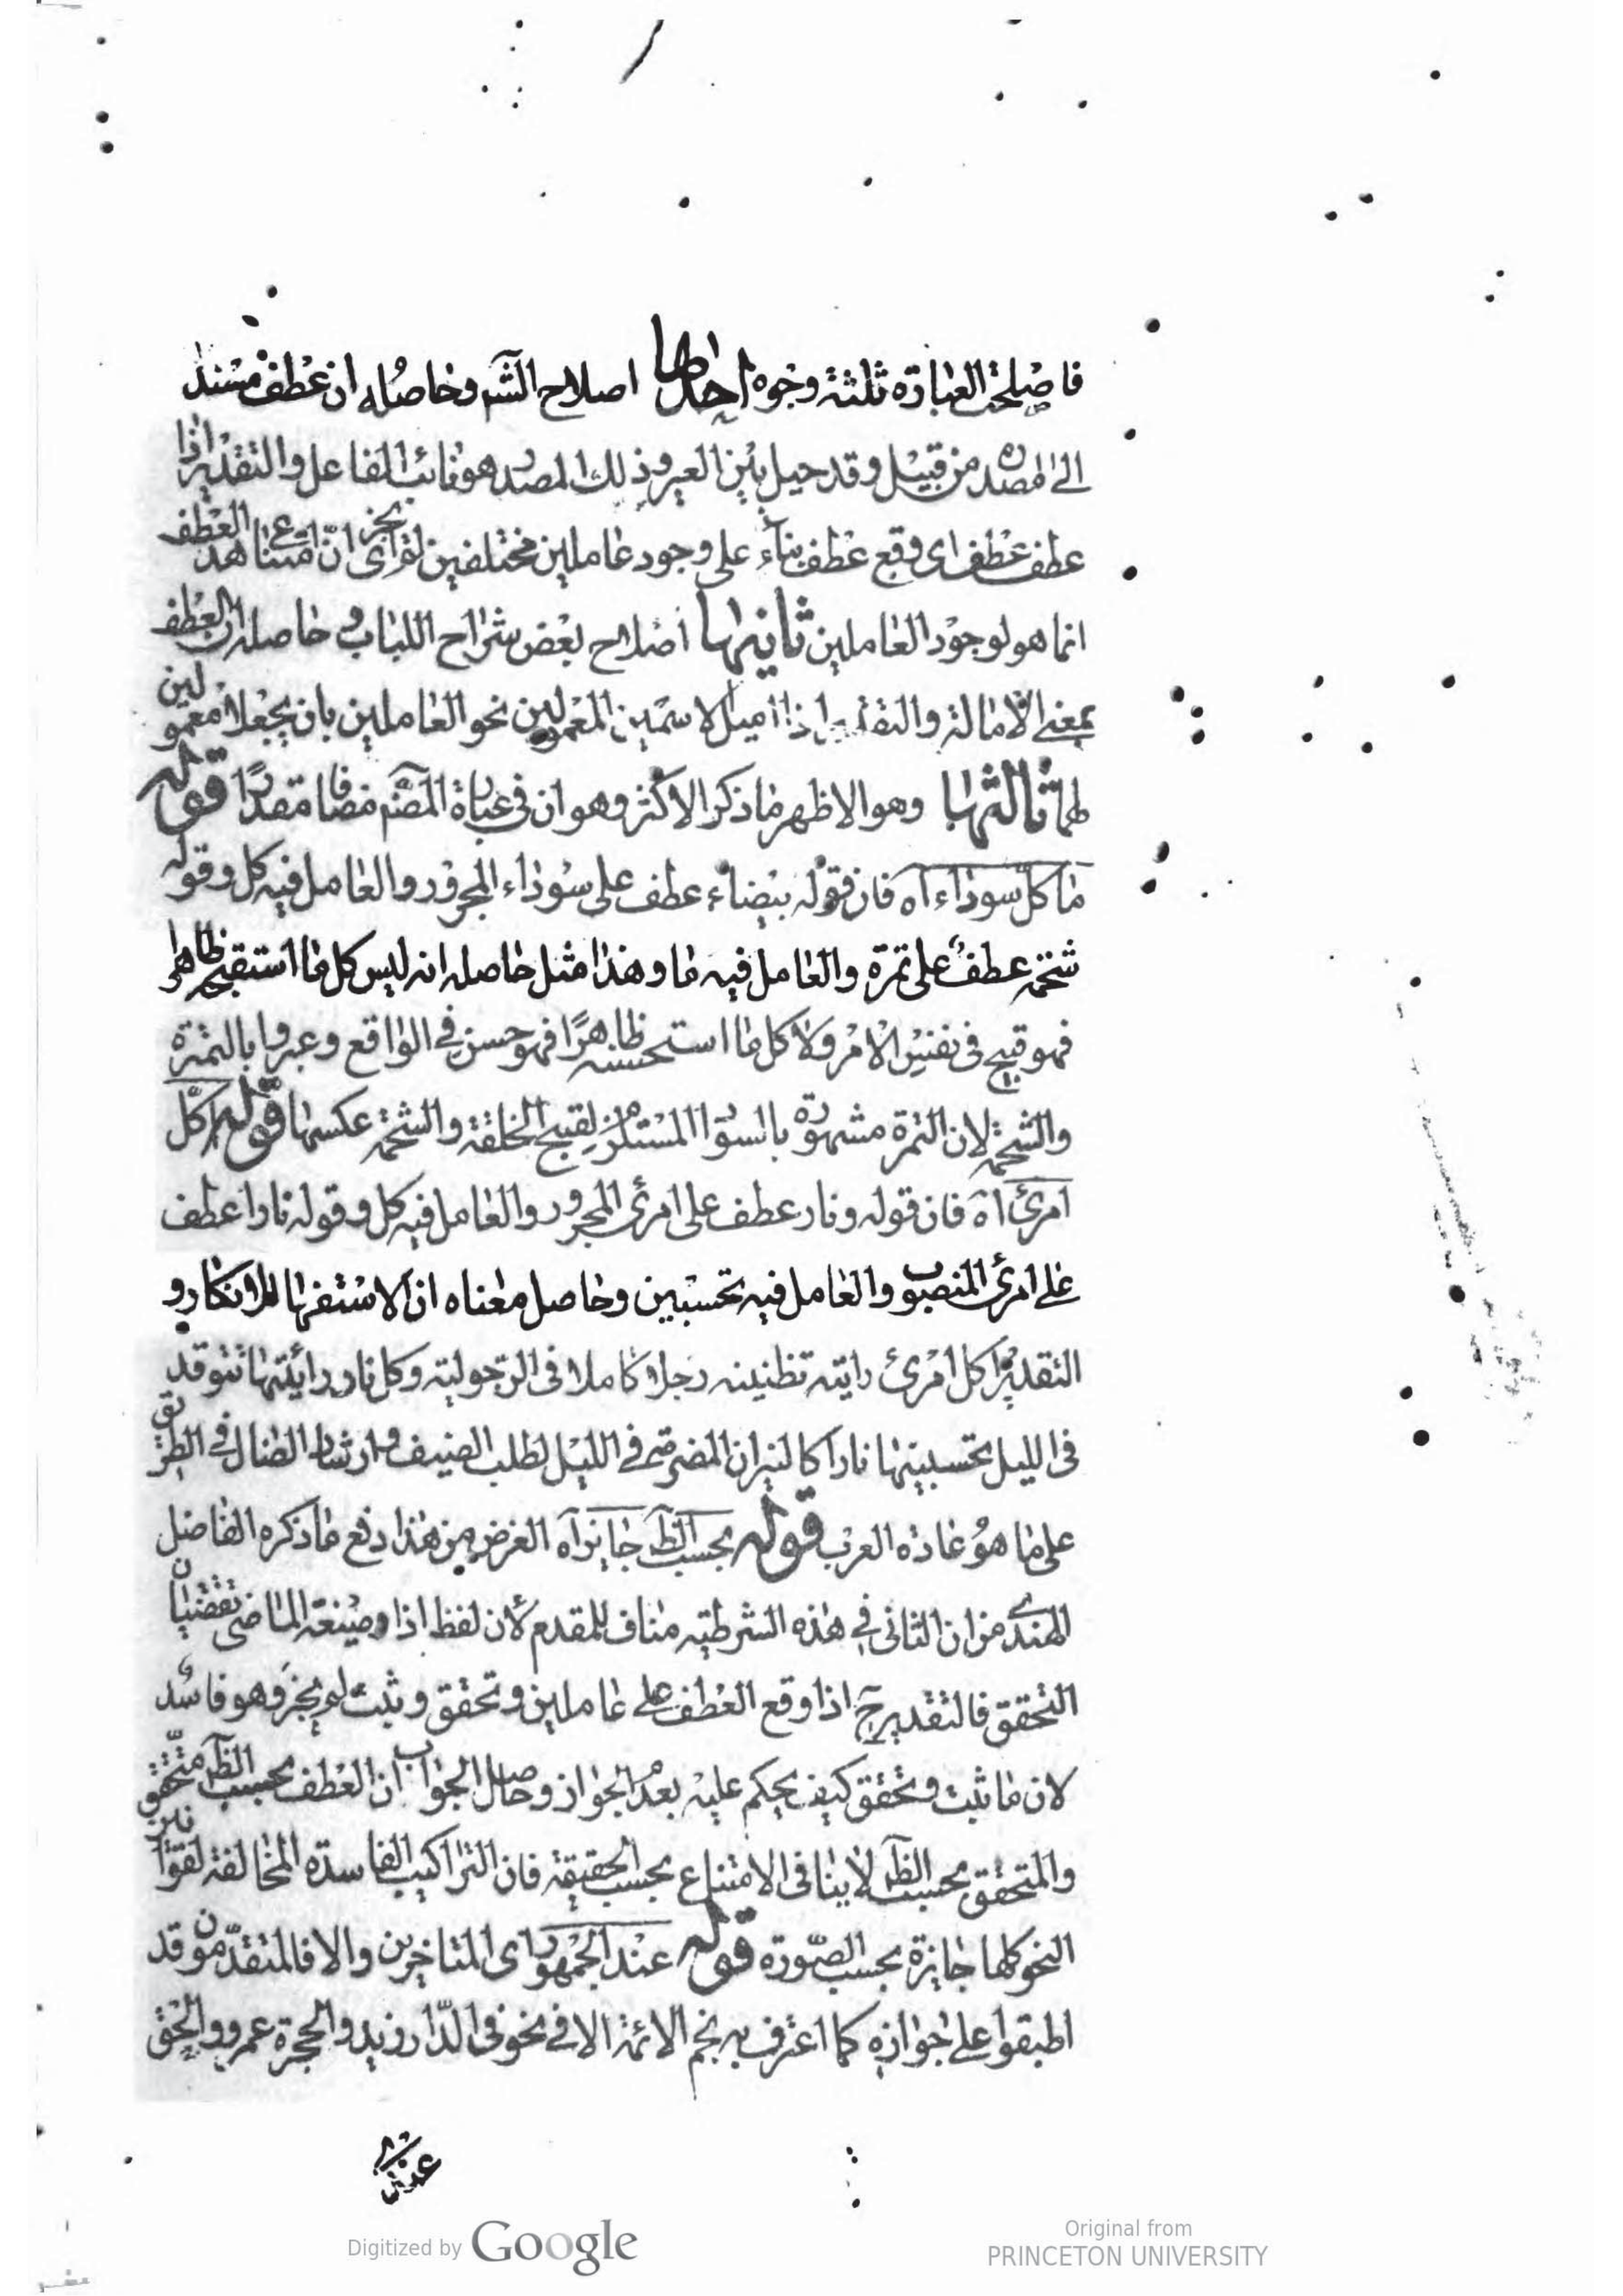 فاصلحت العبارة ثلثة وجوه احدها اصلاح الشم وحاصله ان عطف مسند
الى مصدره من قبيل وقد حيل بين العير وذلك المصدر هو نائب الفاعل والتقدير اذا
عطف عطف اى وقع عطف بناء على وجود عاملين مختلفين لم يجز اى ان امتناع هذ العطف
انما هو لوجود العاملين ثانيها اصلاح بعض شراح اللباب وحاصله ان العطف
بمعنى الامالة والتقدير اذا اميل الاسمين المعمولين نحو العاملين بان يجعلا معمولين
لهما ثالثها وهو الاظهر ما ذكر الاكثر وهو ان فى عبارة المصم مضافا مقدرا قوله
ما كل سوداء آه فان قوله بيضاء عطف على سوداء المجرور والعامل فيه كل وقوله
شحمة عطف على تمرة والعامل فيه ما وهذا مثل حاصله انه ليس كل ما استقبح ظاهرا
فهو قبيح فى نفس الامر ولا كل ما استحسنه ظاهرًا فهو حسن فى الواقع وعبروا بالتمرة
والشحمة لان التمرة مشهورة بالسواد المستلزم لقبح الخلقة والشحمة عكسها قوله اكل
امرئ آه فان قوله ونار عطف على امرئ المجرور والعامل فيه كل وقوله نارا عطف
على امرئ المنصوب والعامل فيه تحسبين وحاصل معناه ان الاستفهام للانكار و
التقدير اكل امرئ رايته تظنينه رجلا كاملا فى الرجولية وكل نار رائيتها تتوقد
فى الليل تحسبينها نارا كالنيران المضرمة فى الليل لطلب الضيف وارشاد الضال فى الطريق
على ما هو عادة العرب قوله بحسب الظ جايز آه الغرض من هذا دفع ما ذكره الفاضل
الهندى من ان الثانى فى هذه الشرطية مناف للمقدم لان لفظ اذا وصيغة الماضى تقتضيان
التحقق فالتقدير ح اذا وقع العطف على عاملين وتحقق وثبت لم يجز وهو فاسد
لان ما ثبت وتحقق كيف يحكم عليه بعدم الجواز وحاصل الجواب ان العطف بحسب الظ متحقق
والمتحقق بحسب الظ لا ينافى الامتناع بحسب الحقيقة فان التراكيب الفاسدة المخالفة لقوانين
النحو كلها جايزة بحسب الصورة قوله عند الجمهور اى المتاخرين والا فالمتقدمون قد
اطبقوا على جوازه كما اعترف به نجم الائمة الا فى نحو فى الدار زيد والحجرة عمرو والحق
Digitized by Google
Original from
PRINCETON UNIVERSITY